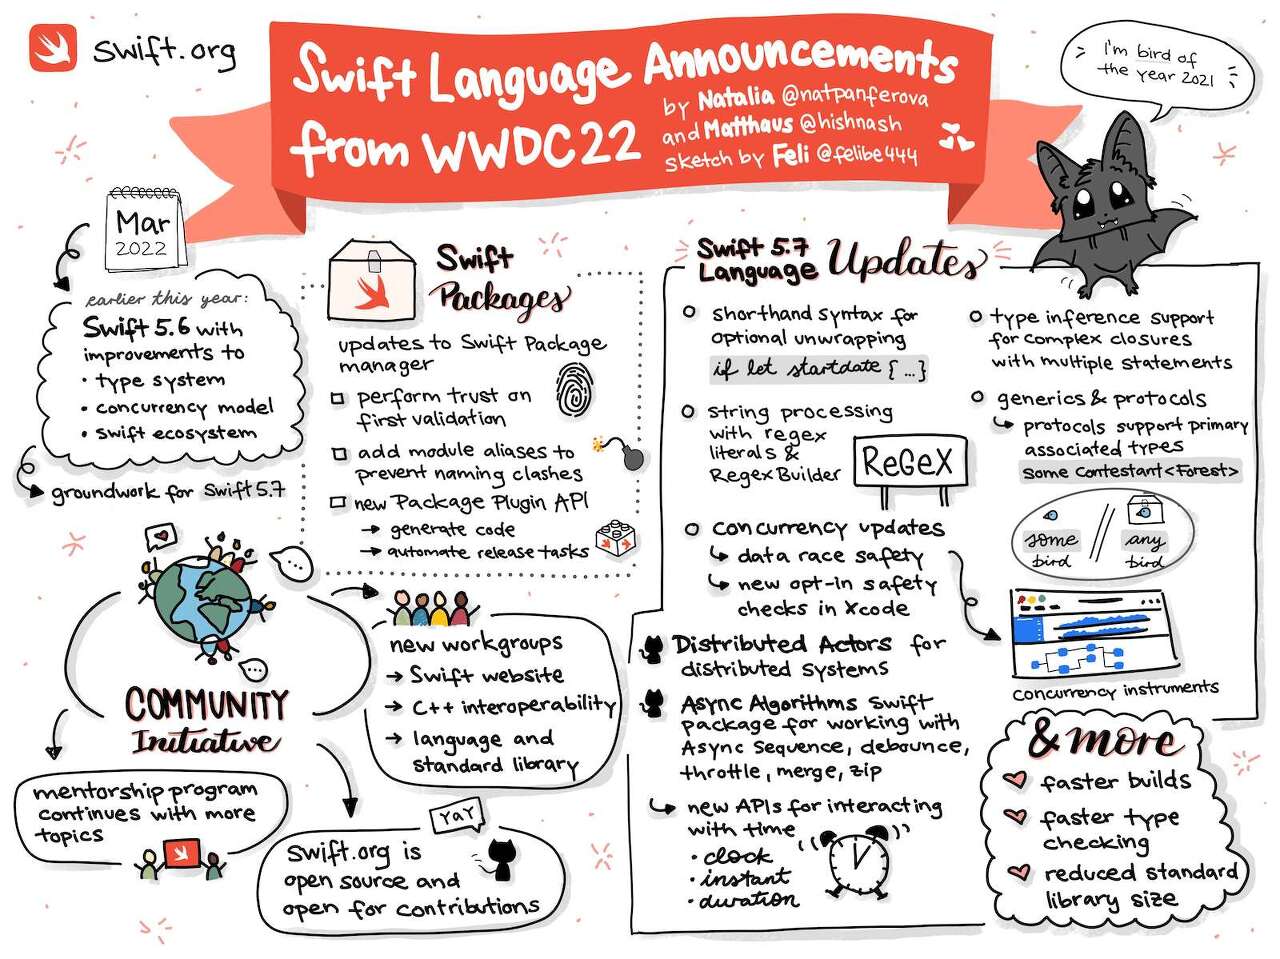 swift.org
Swift Language Announcements
from WWDC22
by Natalia @natpanferova
and Matthaus @hishnash
sketch by Feli @felibe444
I'm bird of
the year 2021
Mar
2022
earlier this year:
Swift 5.6 with
improvements to
• type system
• concurrency model
• swift ecosystem
groundwork for Swift 5.7
Swift
Packages
updates to Swift Package
manager
perform trust on
first validation
add module aliases to
prevent naming clashes
new Package Plugin API
→ generate code
→ automate release tasks
COMMUNITY
Initiative
new workgroups
→ Swift website
→ C++ interoperability
→ language and
standard library
mentorship program
continues with more
topics
YAY
Swift.org is
open source and
open for contributions
Swift 5.7
Language Updates
shorthand syntax for
optional unwrapping
if let startdate { ... }
string processing
with regex
literals &
RegexBuilder
ReGeX
concurrency updates
↳ data race safety
↳ new opt-in safety
checks in Xcode
Distributed Actors for
distributed systems
Async Algorithms Swift
package for working with
Async Sequence, debounce,
throttle, merge, zip
↳ new APIs for interacting
with time
• clock
• instant
• duration
type inference support
for complex closures
with multiple statements
generics & protocols
↳ protocols support primary
associated types
some Contestant<Forest>
some
bird
//
any
bird
concurrency instruments
& more
faster builds
faster type
checking
reduced standard
library size